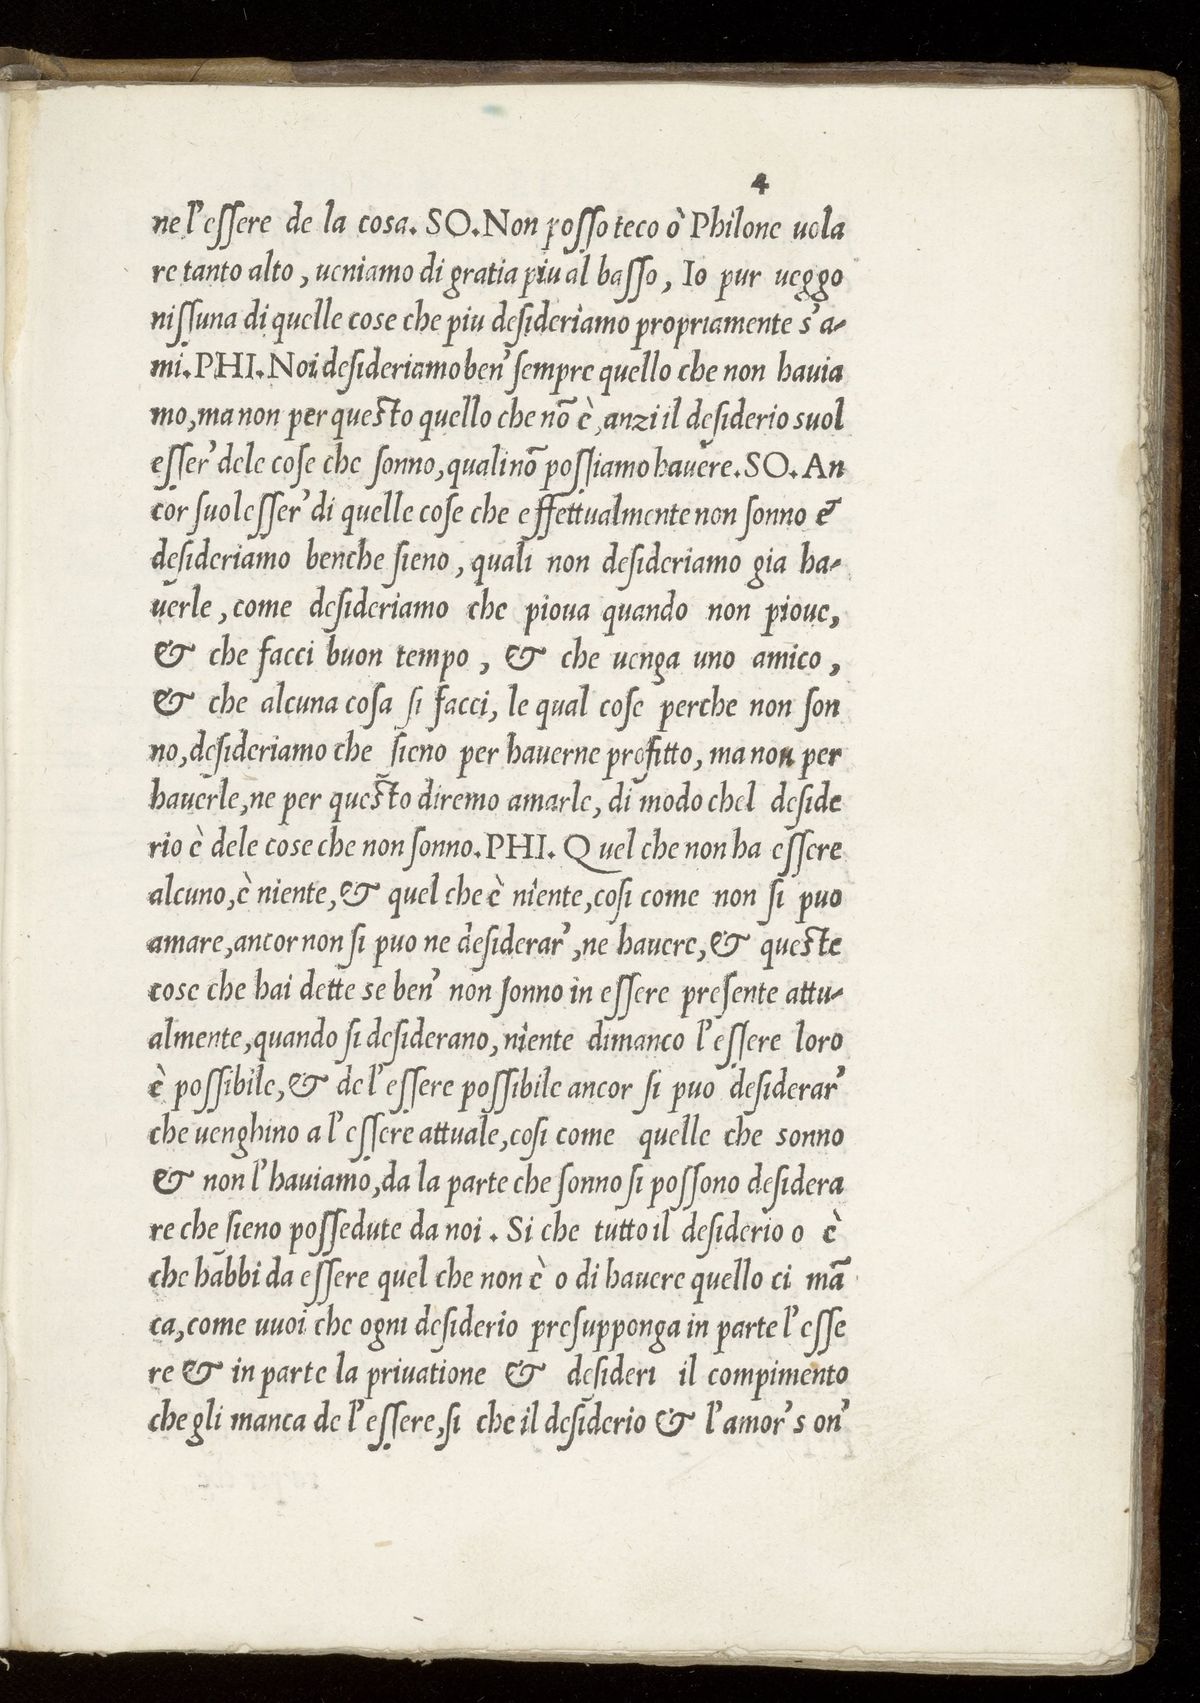 4
ne l'eſſere de la cosa. SO. Non poſſo teco ò Philone uola
re tanto alto, ueniamo di gratia piu al baſſo, Io pur ueggo
niſſuna di quelle cose che piu deſideriamo propriamente s'a-
mi. PHI. Noi deſideriamo ben' ſempre quello che non hauia
mo, ma non per queſto quello che nõ è, anzi il deſiderio suol
eſſer' dele coſe che ſonno, quali nõ poſſiamo hauere. SO. An
cor ſuol eſſer' di quelle coſe che effettualmente non ſonno &
deſideriamo benche ſieno, quali non deſideriamo gia ha-
uerle, come deſideriamo che pioua quando non pioue,
& che facci buon tempo, & che uenga uno amico,
& che alcuna coſa ſi facci, le qual coſe perche non ſon
no, deſideriamo che ſieno per hauerne profitto, ma non per
hauerle, ne per queſto diremo amarle, di modo chel deſide
rio è dele cose che non ſonno. PHI. Quel che non ha eſſere
alcuno, è niente, & quel che è niente, coſi come non ſi puo
amare, ancor non ſi puo ne deſiderar', ne hauere, & queſte
cose che hai dette se ben' non ſonno in eſſere preſente attu-
almente, quando ſi deſiderano, niente dimanco l'eſſere loro
è poſſibile, & de l'eſſere poſſibile ancor ſi puo deſiderar'
che uenghino a l'eſſere attuale, coſi come quelle che sonno
& non l'hauiamo, da la parte che ſonno ſi poſſono deſidera
re che ſieno poſſedute da noi. Si che tutto il deſiderio o è
che habbi da eſſere quel che non è o di hauere quello ci mã
ca, come uuoi che ogni deſiderio preſupponga in parte l'eſſe
re & in parte la priuatione & deſideri il compimento
che gli manca de l'eſſere, ſi che il deſiderio & l'amor' s on'